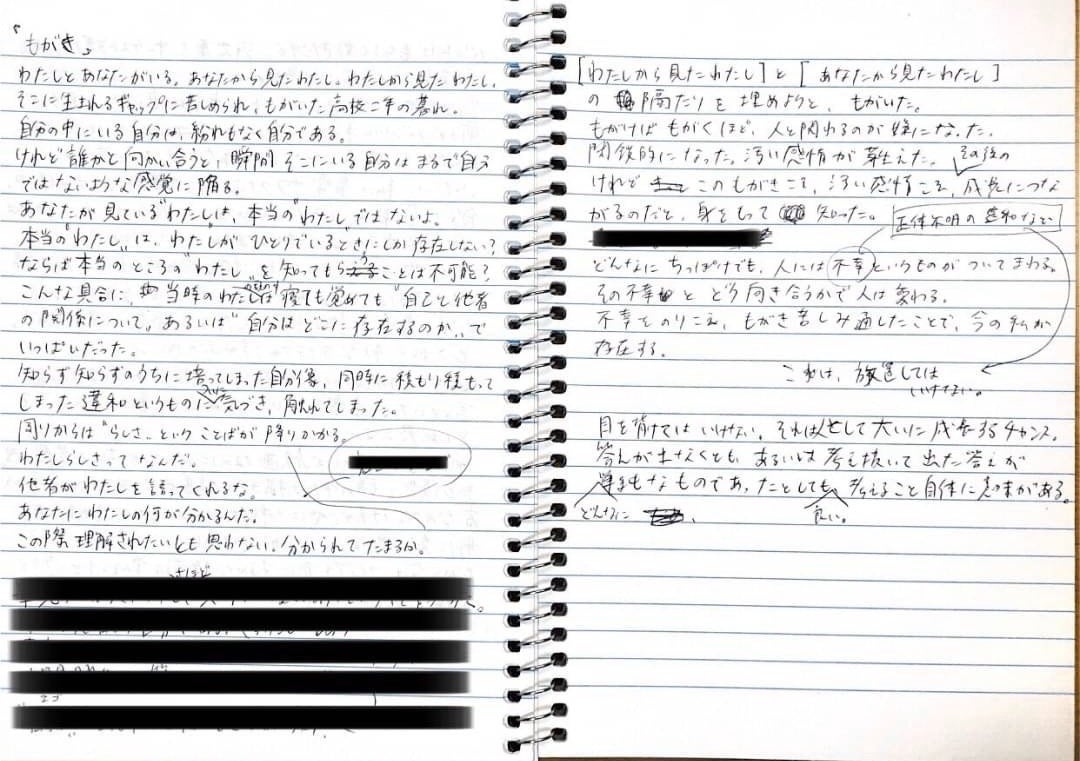 「もがき」
わたしとあなたがいる。あなたから見たわたし。わたしから見たわたし。
そこに生まれるギャップに苦しめられ、もがいた高校二年の暮れ。
自分の中にいる自分は、紛れもなく自分である。
けれど誰かと向かい合うと、瞬間そこにいる自分はまるで自分
ではないような感覚に陥る。
あなたが見ている"わたし"は、本当の"わたし"ではないよ。
本当の"わたし"は、わたしがひとりでいるときにしか存在しない?
ならば本当のところの"わたし"を知ってもらうことは不可能?
こんな具合に、当時のわたしは寝ても覚めても"自己と他者
の関係について"あるいは"自分はどこに存在するのか"で
いっぱいだった。
知らず知らずのうちに培ってしまった自分像、同時に積もり積もって
しまった違和というものについに気づき、触れてしまった。
周りからは"らしさ"ということばが降りかかる。
わたしらしさってなんだ。
他者がわたしを語ってくれるな。
あなたにわたしの何が分かるんだ。
この際理解されたいとも思わない。分かられてたまるか。
さほど
[わたしから見たわたし]と[あなたから見たわたし]
の隔たりを埋めようと、もがいた。
もがけばもがくほど、人と関わるのが嫌になった。
閉鎖的になった。汚い感情が芽生えた。
その後の
けれどこのもがきこそ、汚い感情こそ、成長につな
がるのだと、身をもって知った。
正体不明の違和など
どんなにちっぽけでも、人には不幸というものがついてまわる。
その不幸とどう向き合うかで人は変わる。
不幸をのりこえ、もがき苦しみ通したことで、今の私が
存在する。
これは、放置しては
いけない。
目を背けてはいけない。それは人として大いに成長するチャンス。
答えが出なくとも、あるいは考え抜いて出た答えが
なものであったとしても、考えること自体に意味がある。
どんなに
良い。